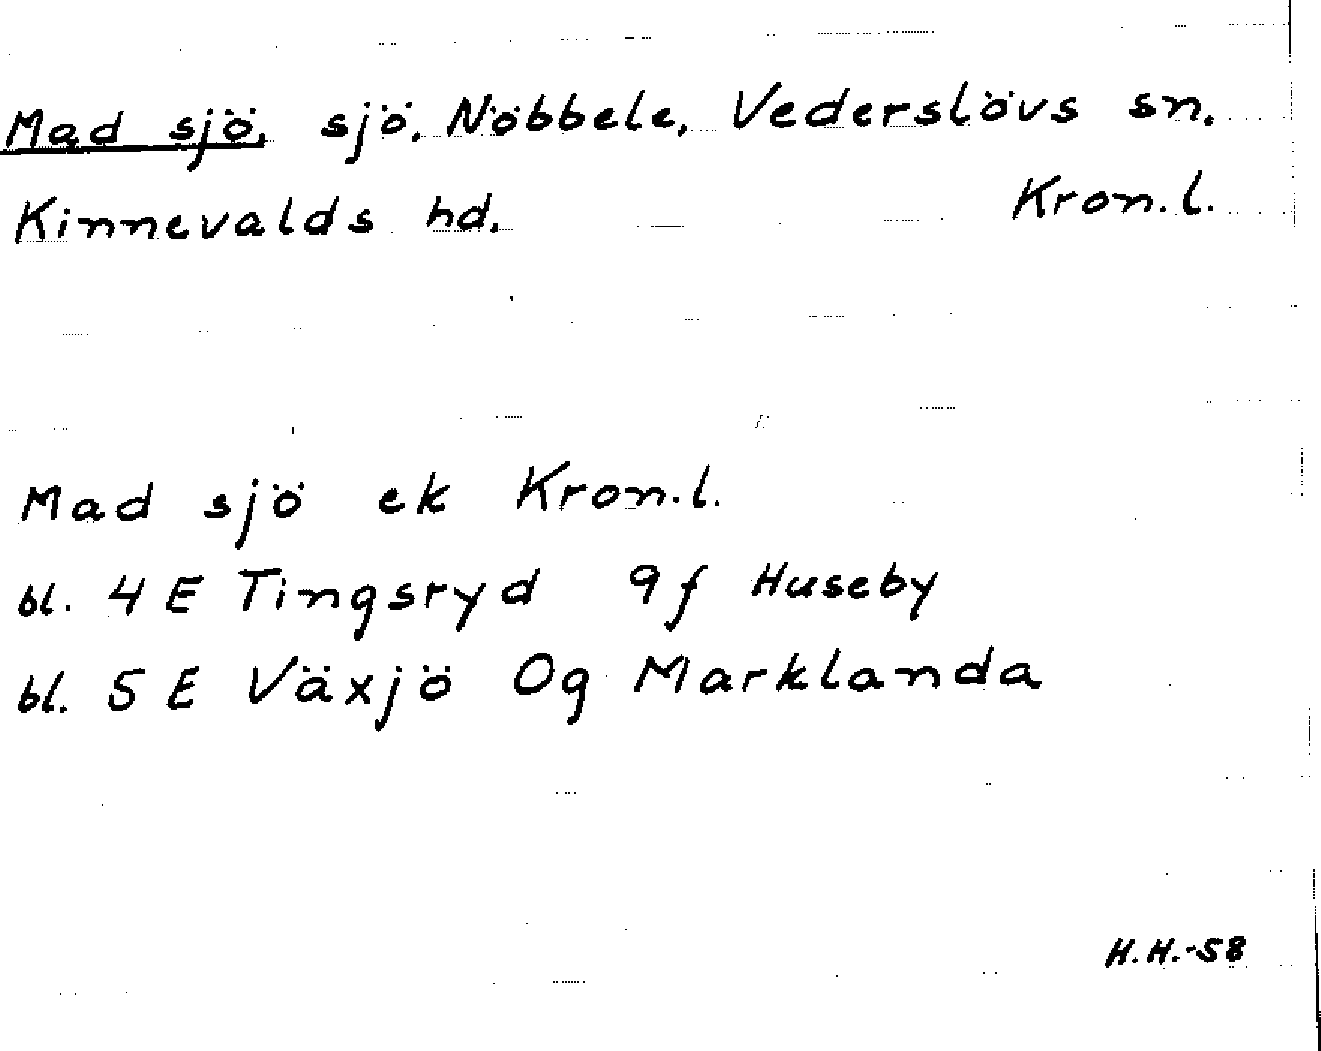 Mad sjö, sjö, Nöbbele, Vederslövs sn.
Kinnevalds hd. Kron.l.
Mad sjö ek Kron.l.
bl. 4 E Tingsryd 9f Huseby
bl. 5 E Växjö 0g Marklanda
H.H.-58